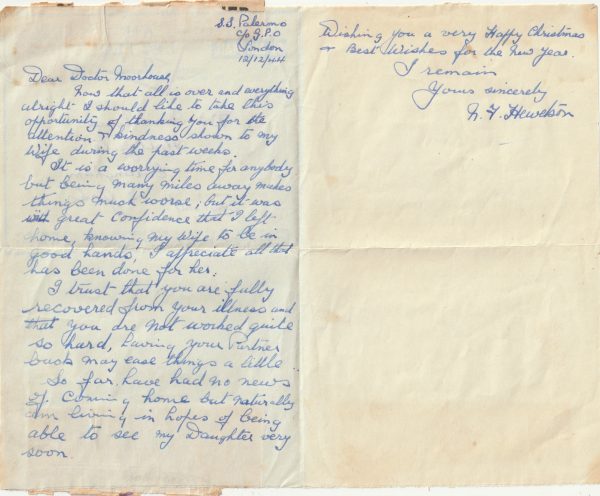 S.S. Palermo
c/o G.P.O
London
12/12/44
Dear Doctor Moorhouse,
Now that all is over and everything
alright I should like to take this
opportunity of thanking you for the
attention & kindness shown to my
Wife during the past weeks.
It is a worrying time for anybody
but being many miles away makes
things much worse; but it was
with great Confidence that I left
home, knowing my Wife to be in
good hands, I appreciate all that
has been done for her.
I trust that you are fully
recovered from your illness and
that you are not worked quite
so hard, having your Partner
back may ease things a little.
So far have had no news
of coming home but naturally
am living in hopes of being
able to see my Daughter very
soon.
Wishing you a very Happy Christmas
& Best Wishes for the New Year.
I remain
Yours sincerely